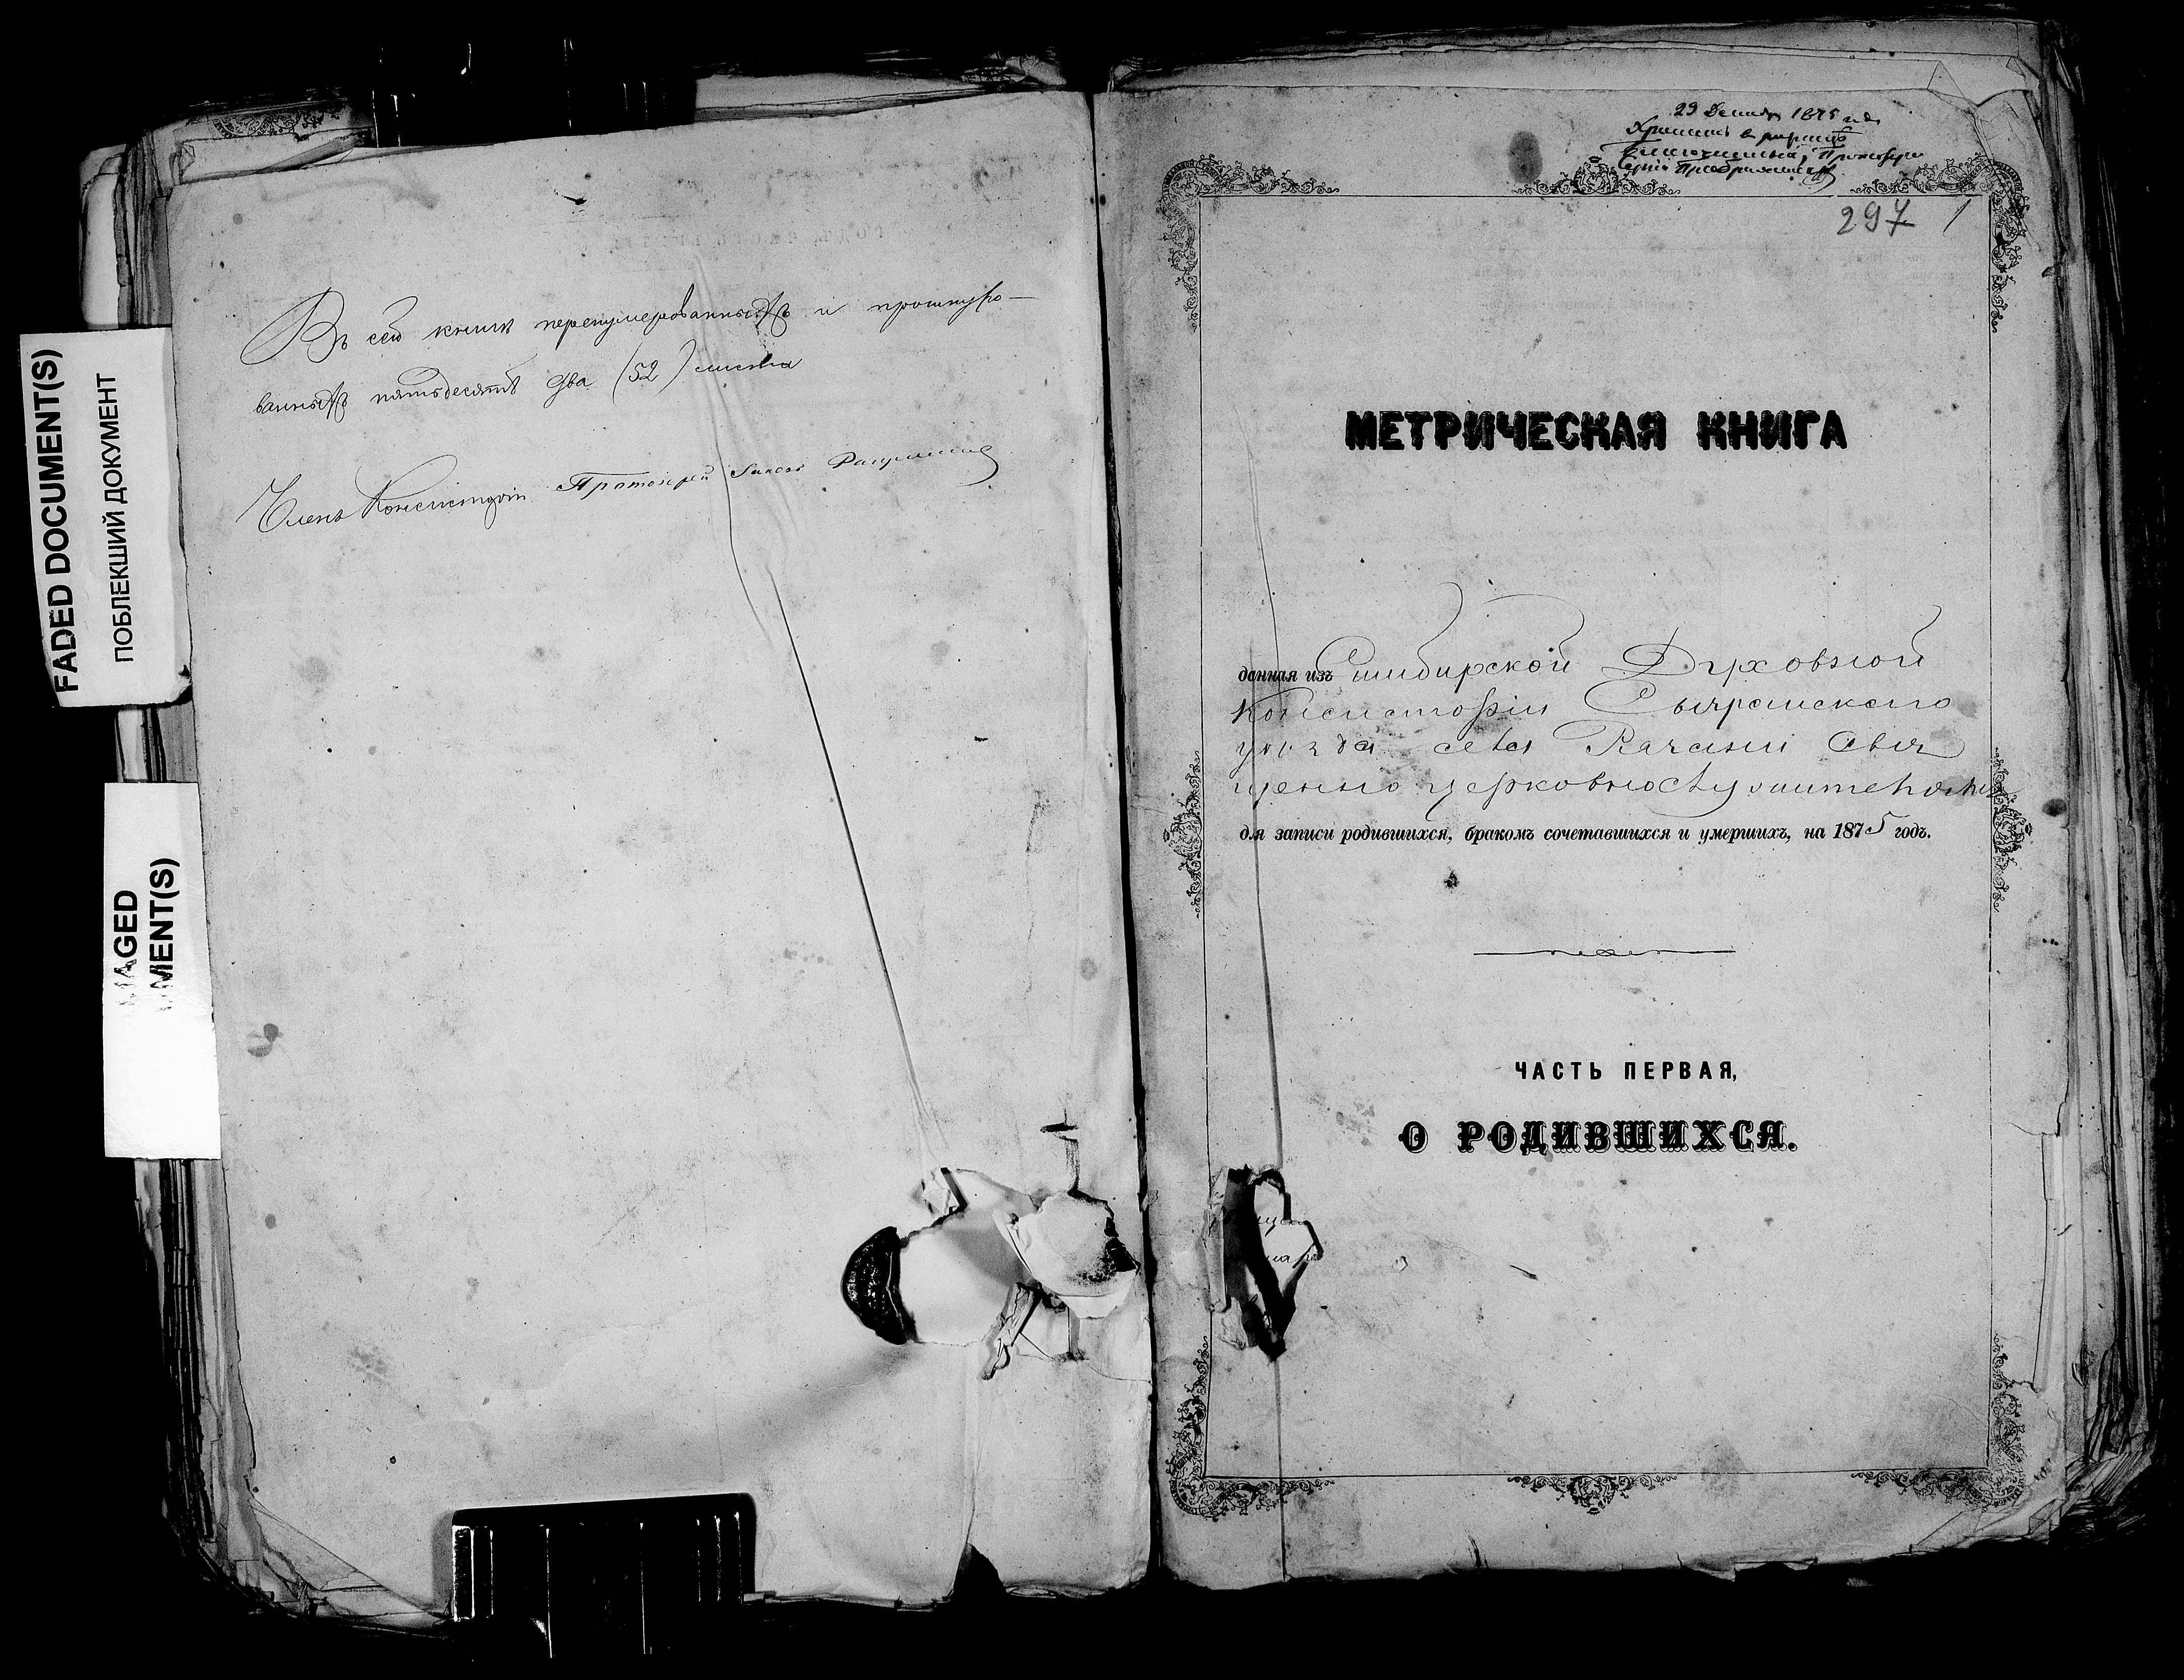 FADED DOCUMENT(S)
ПОБЛЕКШИЙ ДОКУМЕНТ
AGED
MENT(S)
Въ сей книгѣ перенумерованныхъ и прошнуро-
ванныхъ пятьдесятъ два (52) листа
Членъ Консисторіи Протоіерей
29 Декабр 1875 года
297 1
МЕТРИЧЕСКАЯ КНИГА
данная изъ Симбирской Духовной
Консисторіи Сызранскаго
уѣзда села Рачейки Свя
щенно церковнослужителямъ
для записи родившихся, бракомъ сочетавшихся и умершихъ, на 1875 годъ.
ЧАСТЬ ПЕРВАЯ,
О РОДИВШИХСЯ.